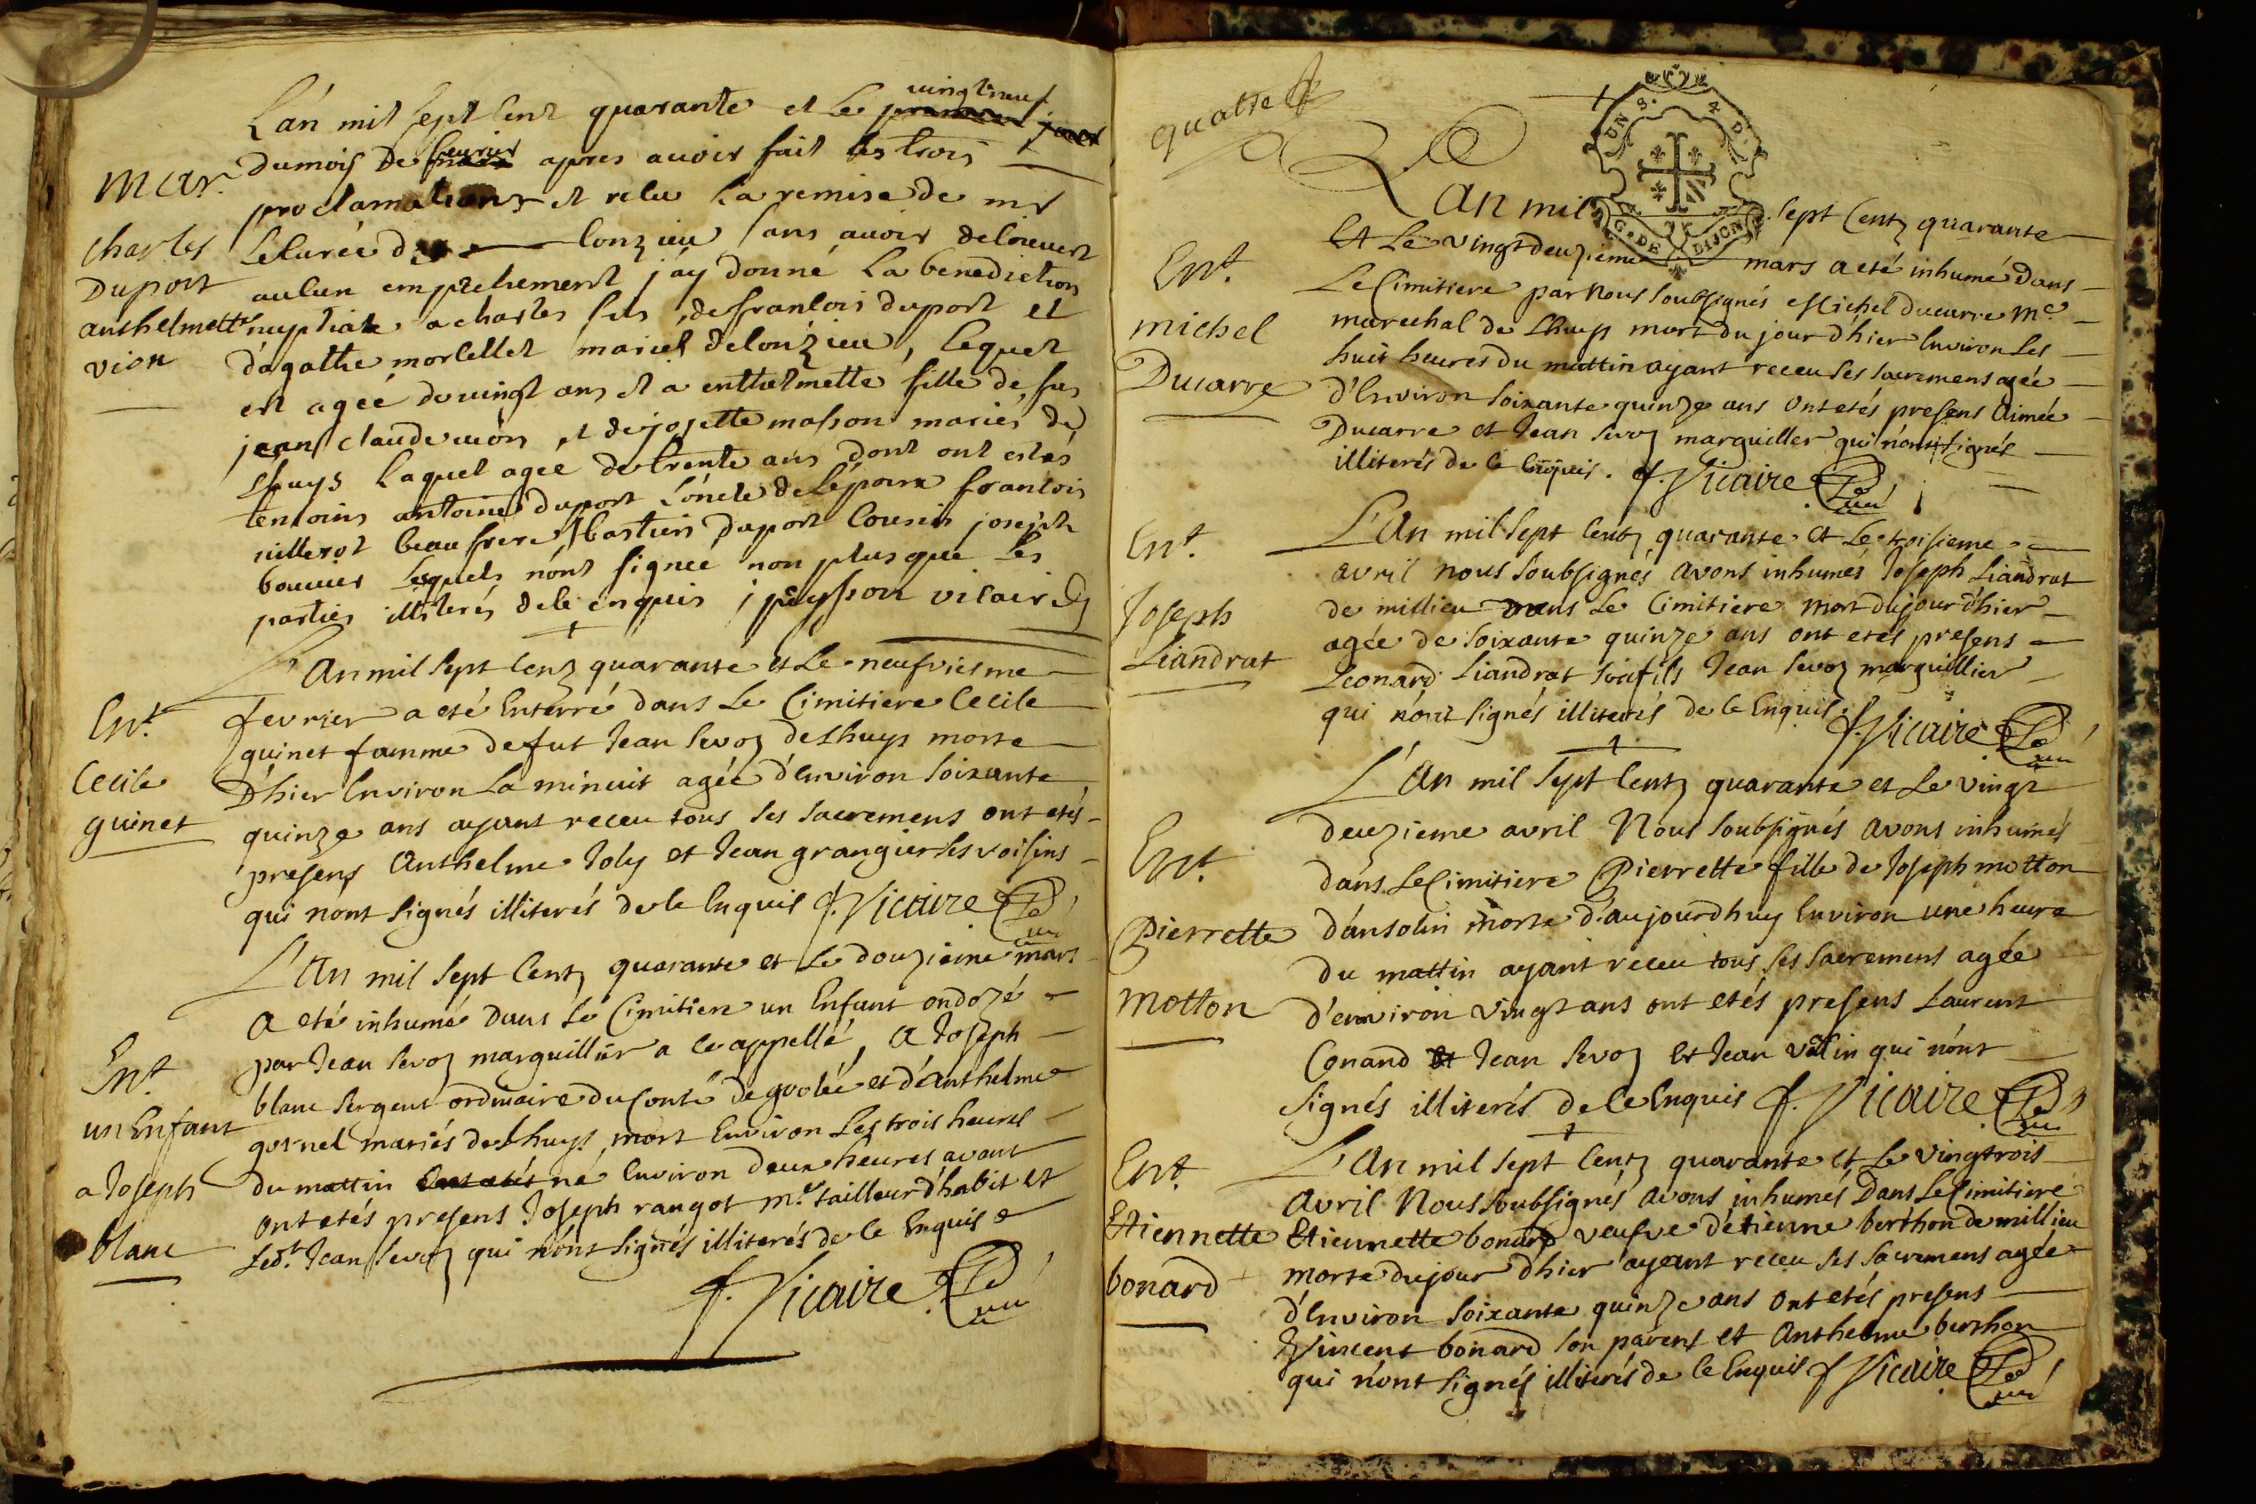 L'an mil sept cent quarante et le premier jour vingtneuf
Mar. dumois de mars feurier apres auoir fait les trois
proclamations et relu la remise de mr
charles le curée de conzieu sans auoir delouuert
Duport aulun empechement j'ay donné la benediction
anthelmette nuptiale a charles fils de francois duport et
vion d'agathe morcellet mariés de conzieu, lequel
est agée de vingt ans et a enthelmette fille de fus
jean claude uion et de josette masson mariés de
Lhuys laquel agée de trente ans dont ont estés
temoins antoine duport l'oncle de l'epoux francois
uillerot beaufrere, bastien duport cousin joseph
bouuier lequels n'ont signee non plus que les
parties illiterés de ce enquis j peysson vicair
L'An mil sept centz quarante et le neufviesme
Ent. fevrier a eté Enterré dans le Cimitiere Cecile
guinet famme defut Jean sevoz de Lhuys morte
Cecile D'hier Environ la minuit agée d'Environ soixante
guinet quinze ans ayant receu tous ses sacremens ont etés
presens Anthelme Joly et Jean grangier ses voisins
qui nont signés illiterés de le Enquis f. Vicaire Curé
L'An mil sept Centz quarante et le douzieme mars
A eté inhumé dans le Cimitiere un Enfant ondozé
Ent par Jean sevoz marguillier a ce appellé, A Joseph
un Enfant blanc sergent ordinaire du Conté de grolée et d'Anthelme
gornel mariés de Lhuys, mort Environ les trois heures
a Joseph du mattin ont etés né Environ deux heures avant
ont etés presens Joseph rangot me. tailleur d'habit et
blanc Ledt. Jean sevoz qui n'ont signés illiterés de le Enquis
f. Vicaire Curé
quatre
UN S. 4 D.
G. DE DIJON
L'An mil sept Centz quarante
Et le vingt deuzieme mars a eté inhumé dans
Ent. Le Cimitiere par Nous soubsignés Michel ducarre Me.
michel marechal de Lhuys mort du jour d'hier Environ les
huit heures du mattin ayant receu ses sacremens agée
Ducarre d'Environ soixante quinze ans Ont etés presens Aimée
Ducarre et Jean sevoz marguiller qui n'ont signés
illiterés de le Enquis. f. Vicaire Curé
L'An mil sept Centz quarante Et le troisieme
Ent. avril nous soubsignés avons inhumés Joseph Liandrat
Joseph de millieu dans le Cimitiere mort du jour d'hier
agée de soixante quinze ans ont etés presens
Liandrat Leonard Liandrat son fils Jean sevoz marguillier
qui n'ont signés illiterés de le Enquis. f. Vicaire Curé
L'An mil sept Centz quarante et le vingt
deuzieme avril Nous soubsignés avons inhumés
Ent. dans le Cimitiere Pierrette fille de Joseph motton
Pierrette d'ansolin morte d'aujourdhuy Environ une heure
du mattin ayant receu tous ses sacremens agée
motton d'environ vingt ans ont etés presens Laurent
Conand et Jean sevoz Et Jean vettin qui n'ont
signés illiterés de le Enquis f. Vicaire Curé
Ent. L'An mil sept Centz quarante Et le vingtrois
avril Nous soubsignés avons inhumés Dans le Cimitiere
Etiennette Etiennette bonard veufve d'étienne berthon de millieu
bonard morte du jour d'hier ayant receu ses sacremens agée
d'Environ soixante quinze ans Ont etés presens
Vincent bonard son parent et Anthelme berthon
qui n'ont signés illiterés de le Enquis f Vicaire Curé